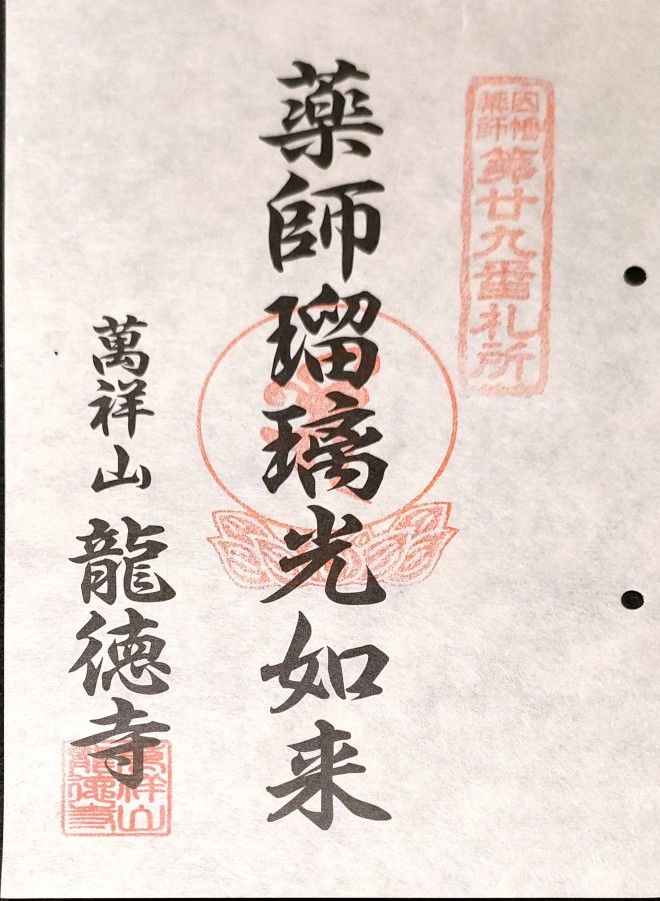 因幡
薬師
第廿九番札所
薬師瑠璃光如来
萬祥山 龍徳寺
萬祥山
龍徳寺